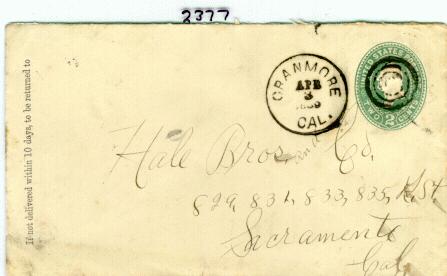 2377
If not delivered within 10 days, to be returned to
CRANMORE
APR
3
1889
CAL.
UNITED STATES
TWO 2 CENTS
Hale Bros. and Co.
829, 831, 833, 835, K. St
Sacramento
Cal